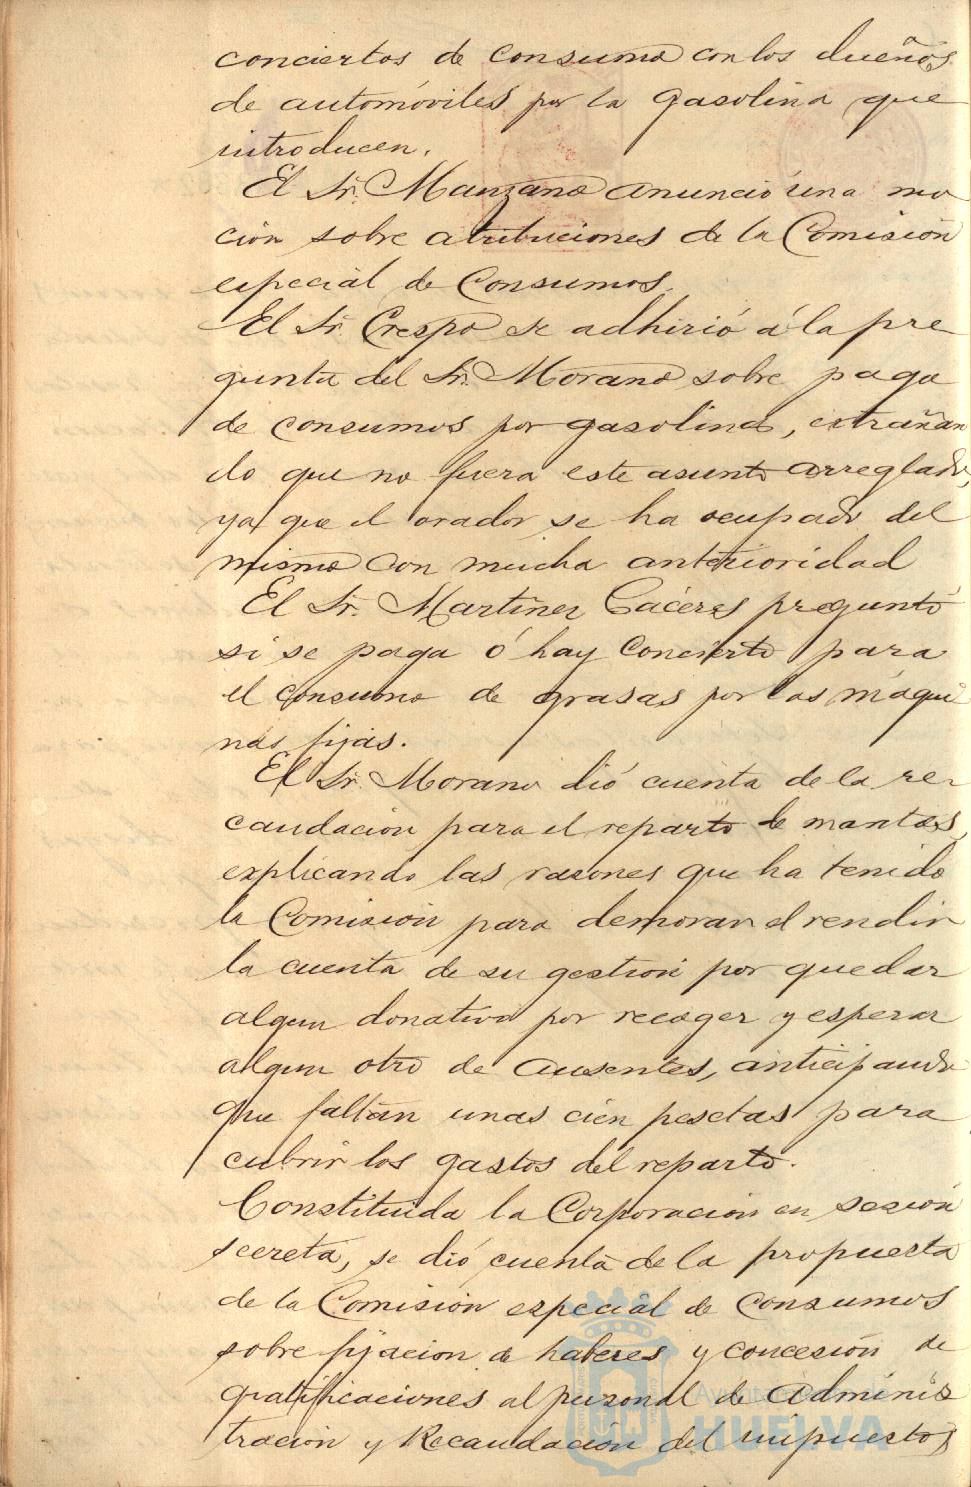 conciertos de consumo con los dueños
de automóviles por la gasolina que
introducen.
El Sr. Manzano anunció una mo
ción sobre atribuciones de la Comisión
especial de Consumos.
El Sr. Crespo se adhirió á la pre
gunta del Sr. Morano sobre pago
de consumos por gasolina, extrañan
do que no fuera este asunto arreglado,
ya que el orador se ha ocupado del
mismo con mucha anterioridad
El Sr. Martínez Cáceres preguntó
si se paga ó hay concierto para
el consumo de grasas por las máqui
nas fijas.
El Sr. Morano dió cuenta de la re-
caudación para el reparto de mantas,
explicando las razones que ha tenido
la Comisión para demorar el rendir
la cuenta de su gestión por quedar
algun donativo por recoger y esperar
algun otro de ausentes, anticipando
que faltan unas cien pesetas para
cubrir los gastos del reparto.
Constituida la Corporación en sesión
secreta, se dió cuenta de la propuesta
de la Comisión especial de Consumos
sobre fijacion de haberes y concesión de
gratificaciones al personal de Adminis
tracion y Recaudación del impuesto,
Ayuntamiento de
HUELVA